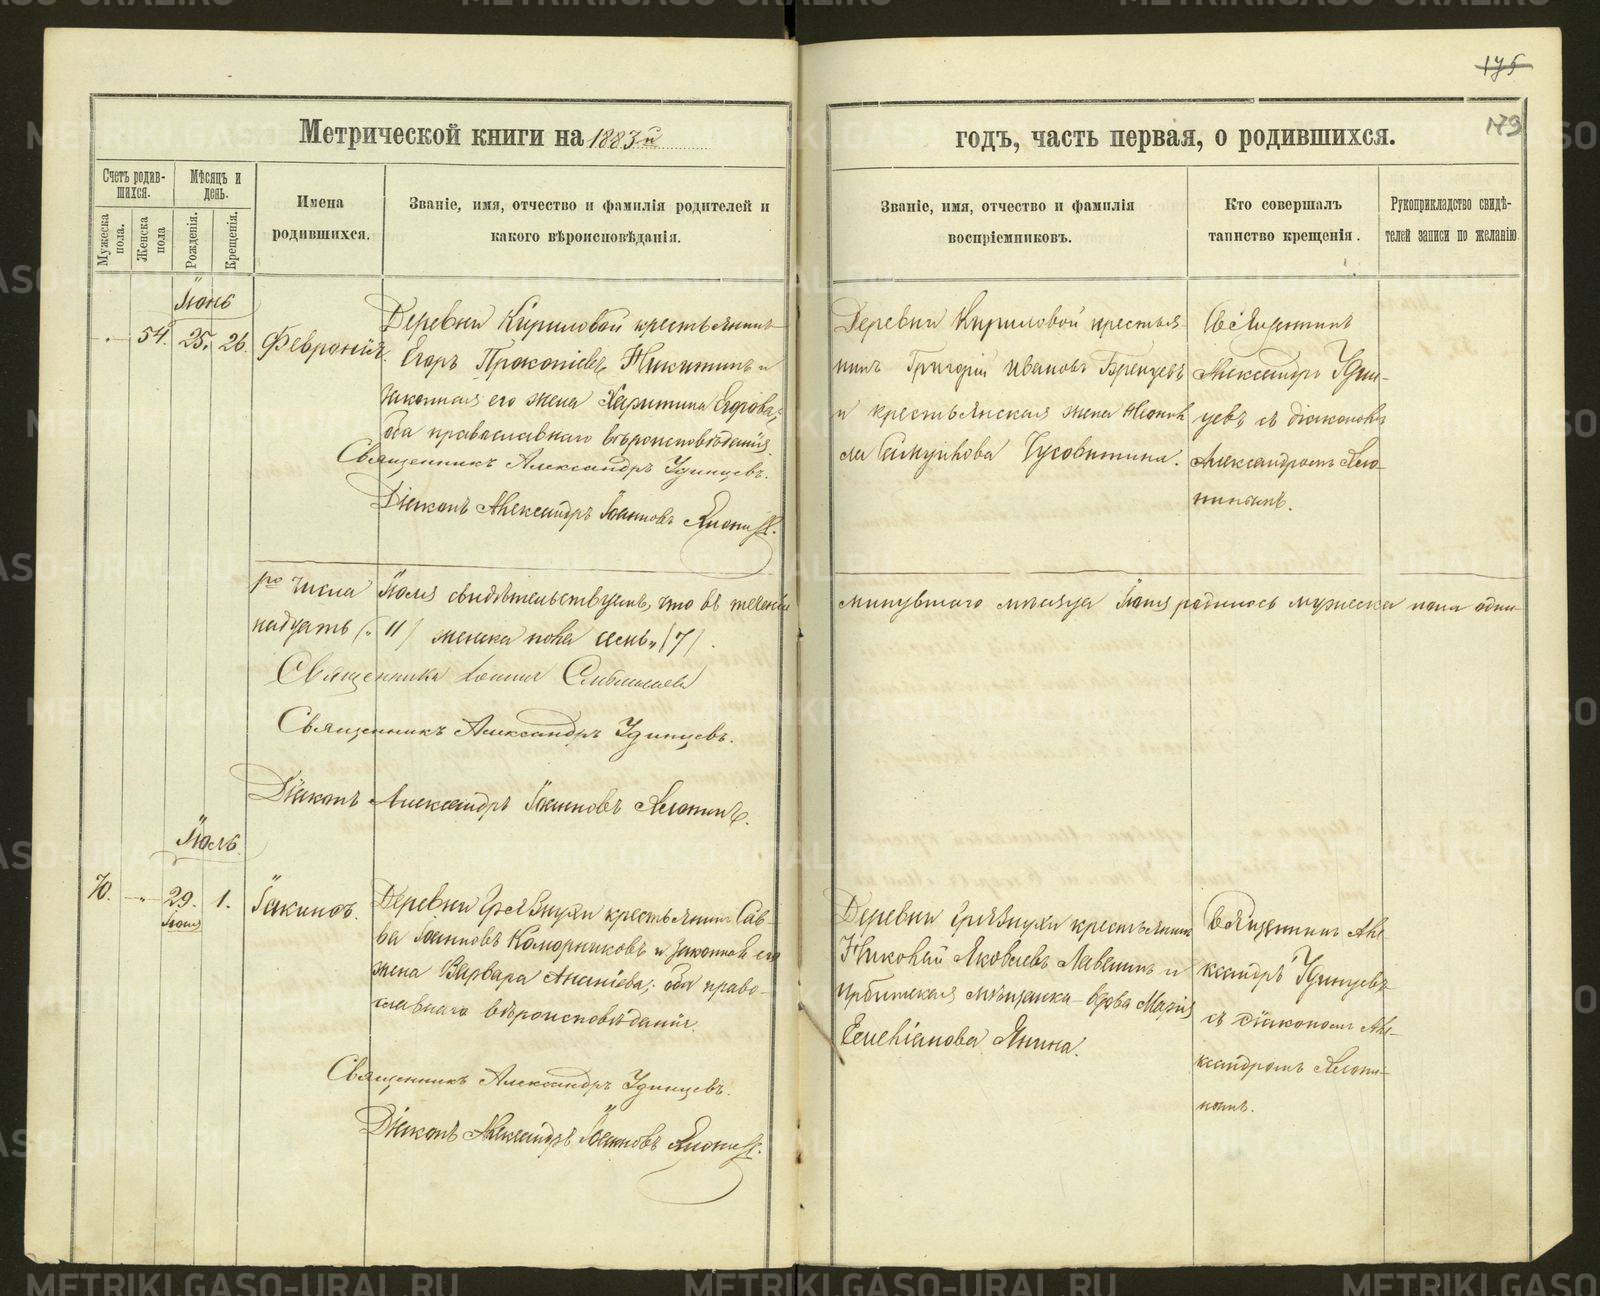 175
179
Метрической книги на 1883й
годъ, часть первая, о родившихся.
Счетъ родившихся.
Мужеска пола.
Женска пола
Мѣсяцъ и день.
Рожденія.
Крещенія.
Имена родившихся.
Званіе, имя, отчество и фамилія родителей и
какого вѣроисповѣданія.
Званіе, имя, отчество и фамилія
воспріемниковъ.
Кто совершалъ
таинство крещенія.
Рукоприкладство свидѣ-
телей записи по желанію.
Іюнь
54. 25. 26.
Деревни Кириловой крестьянинъ
Егоръ Прокопіевъ Никитинъ и
законная его жена Харитина Егорова;
оба православнаго вѣроисповѣданія.
Священникъ Александръ Удинцевъ.
Діаконъ Александръ Іоанновъ
Деревни Кириловой крестья-
нинъ Григорій Ивановъ
и крестьянская жена
Самуилова Гусовитина.
Священникъ
Александръ Удин-
цевъ съ діакономъ
Александромъ
го числа Іюля свидѣтельствуемъ, что въ теченіе
минувшаго мѣсяца Іюня родилось мужеска пола один-
надцать (11) женска пола семь (7).
Священникъ Александръ Удинцевъ.
Діаконъ Александръ Іоанновъ
Іюль
70. 29. 1. Іакинѳъ.
Іюня
Деревни Грязнухи крестьянинъ Сав-
ва Іоанновъ Коморниковъ и законная его
жена Варвара Ананіева; оба право-
славнаго вѣроисповѣданія.
Священникъ Александръ Удинцевъ.
Діаконъ Александръ Іоанновъ
Деревни Грязнухи крестьянинъ
Николай Яковлевъ Лавелинъ и
Ирбитская мѣщанка вдова Марія
Янина.
Священникъ Але-
ксандръ Удинцевъ
съ діакономъ Але-
ксандромъ
METRIKI.GASO-URAL.RU